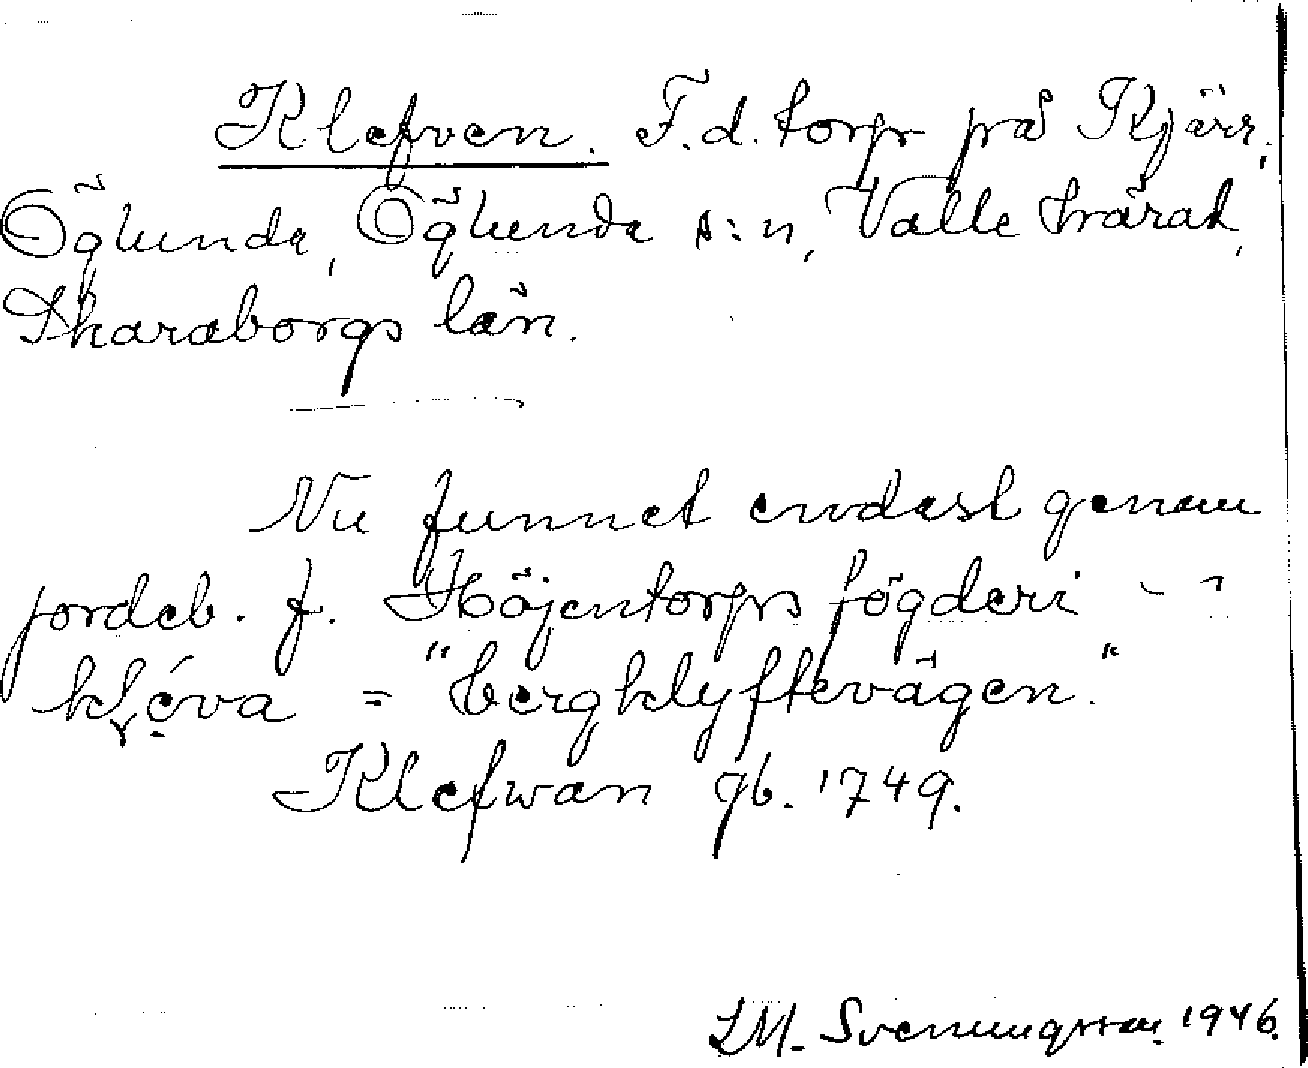 Klefven. F.d. torp på Kjärr,
Öglunda, Öglunda s:n, Valle härad,
Skaraborgs län.
Nu funnet endast genom
jordeb. f. Höjentorps fögderi - -
kléva = "bergklyftevägen."
Klefwan gb. 1749.
LM. Svenungsson. 1946.